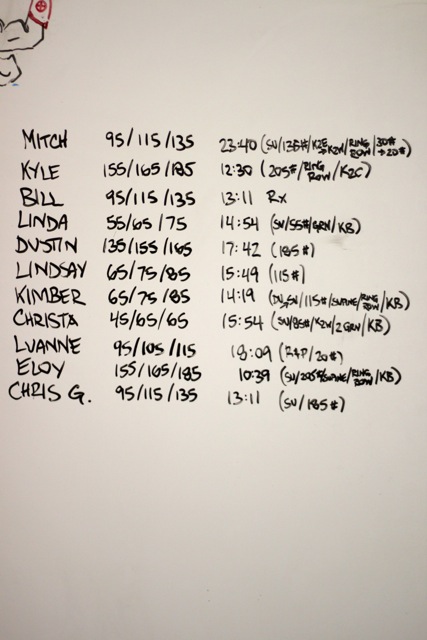 MITCH 95/115/135 23:40 (SU/135#/K2E→K2W/RING ROW/30#→20#)
KYLE 155/165/185 12:30 (205#/RING ROW/K2C)
BILL 95/115/135 13:11 RX
LINDA 55/65/75 14:54 (SU/55#/GRN/KB)
DUSTIN 135/155/165 17:42 (185#)
LINDSAY 65/75/85 15:49 (115#)
KIMBER 65/75/85 14:19 (/115#/SUPINE/RING ROW/KB)
CHRISTA 45/65/65 15:54 (SU/85#/K2W/2 GRN/KB)
LUANNE 95/105/115 18:09 (R&P/20#)
ELOY 155/165/185 10:39 (SU/205#/SUPINE/RING ROW/KB)
CHRIS G. 95/115/135 13:11 (SU/185#)